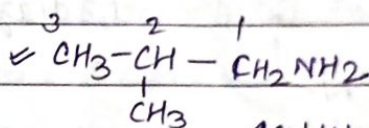 3 2 1
✓ CH3-CH — CH2NH2
CH3